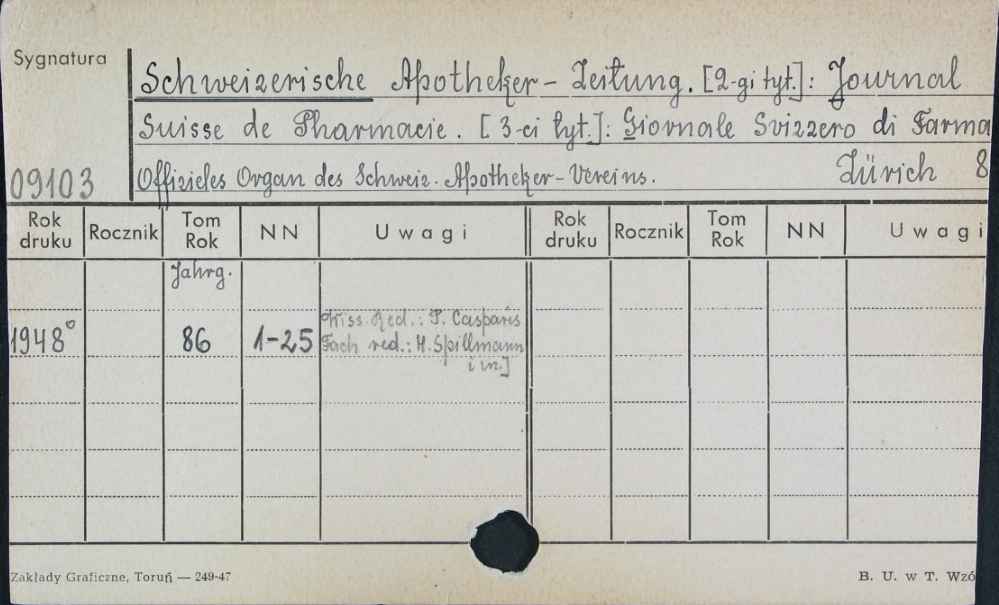 Sygnatura
Schweizerische Apotheker-Zeitung. [2-gi tyt.]: Journal
Suisse de Pharmacie. [3-ci tyt.]: Giornale Svizzero di Farma
09103 Offizieles Organ des Schweiz. Apotheker-Vereins. Zürich 8
Rok druku Rocznik Tom Rok NN Uwagi Rok druku Rocznik Tom Rok NN Uwagi
Jahrg.
1948° 86 1-25 Wiss. Red.: P. Casparis
Fach red.: H. Spillmann
i in.]
Zakłady Graficzne, Toruń — 249-47 B. U. w T. Wzó